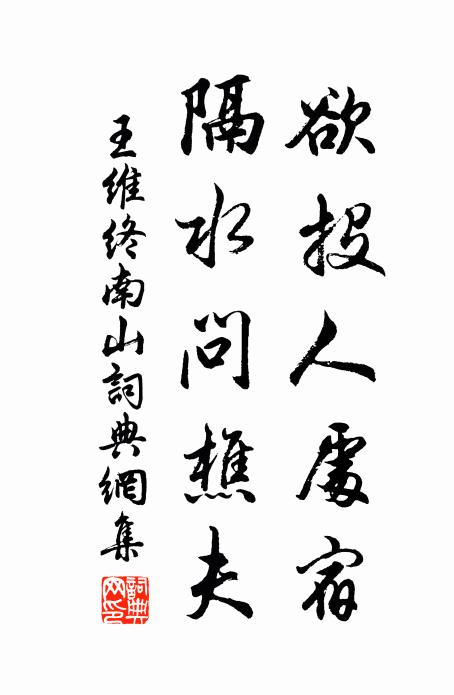 欲投人處宿
隔水問樵夫
王維終南山詞典網集
詞典網印